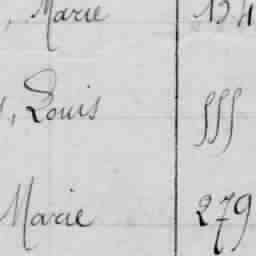 , Marie 134
, Louis 555
Marie 279